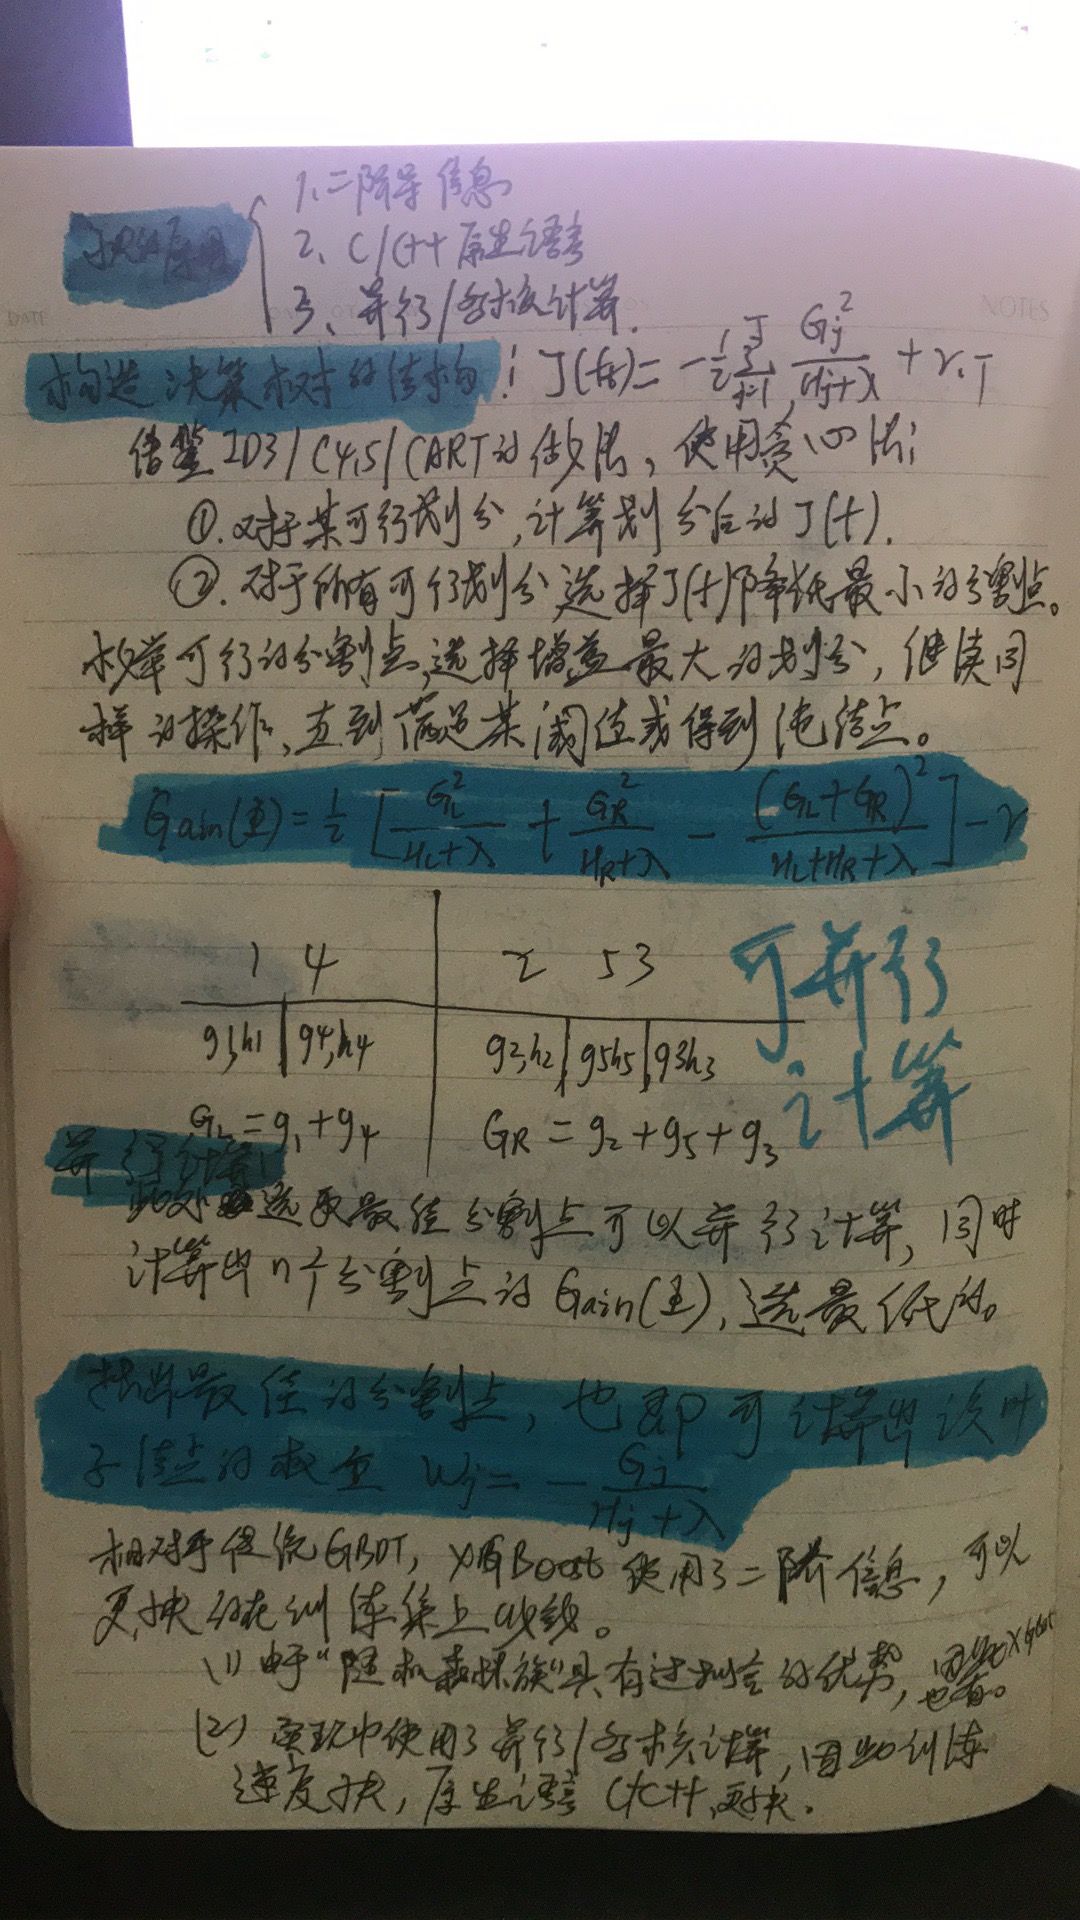 快的原因
1、二阶导信息
2、C/C++原生语言
3、并行/多核计算.
DATE
NOTES
构造决策树的结构: J(ft)= -1/2 Σ_{j=1}^{T} Gj²/(Hj+λ) + γ.T
借鉴ID3/C4.5/CART的做法, 使用贪心法;
①. 对于某可行划分, 计算划分后的J(f).
②. 对于所有可行划分, 选择J(f)降低最小的分割点。
枚举可行的分割点, 选择增益最大的划分, 继续同
样的操作, 直到满足某阈值或得到纯结点。
Gain(Φ) = 1/2 [GL²/(HL+λ) + GR²/(HR+λ) - (GL+GR)²/(HL+HR+λ)] - γ
1 4 2 5 3
可并行
g1,h1 g4,h4 g2,h2 g5h5 g3h3
计算
GL = g1+g4 GR = g2+g5+g3
并行计算:
此处选取最佳分割点可以并行计算, 同时
计算出n个分割点的Gain(Φ), 选最低的。
找出最佳的分割点, 也即可计算出该叶
子结点的权重 Wj = - Gj/(Hj+λ)
相对于传统GBDT, XGBoost使用了二阶信息, 可以
更快的在训练集上收敛。
(1) 由于“随机森林族”具有过拟合的优势, 因此XGBoost
也有。
(2) 实现中使用了并行/多核计算, 因此训练
速度快, 原生语言C/C++, 更快.